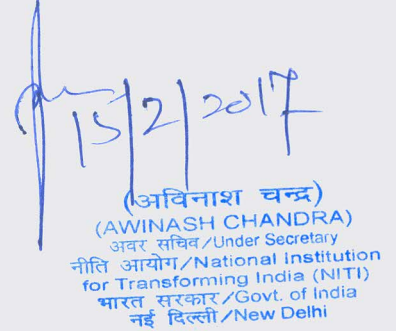 15/2/2017
(अविनाश चन्द्र)
(AWINASH CHANDRA)
अवर सचिव/Under Secretary
नीति आयोग/National Institution
for Transforming India (NITI)
भारत सरकार/Govt. of India
नई दिल्ली/New Delhi